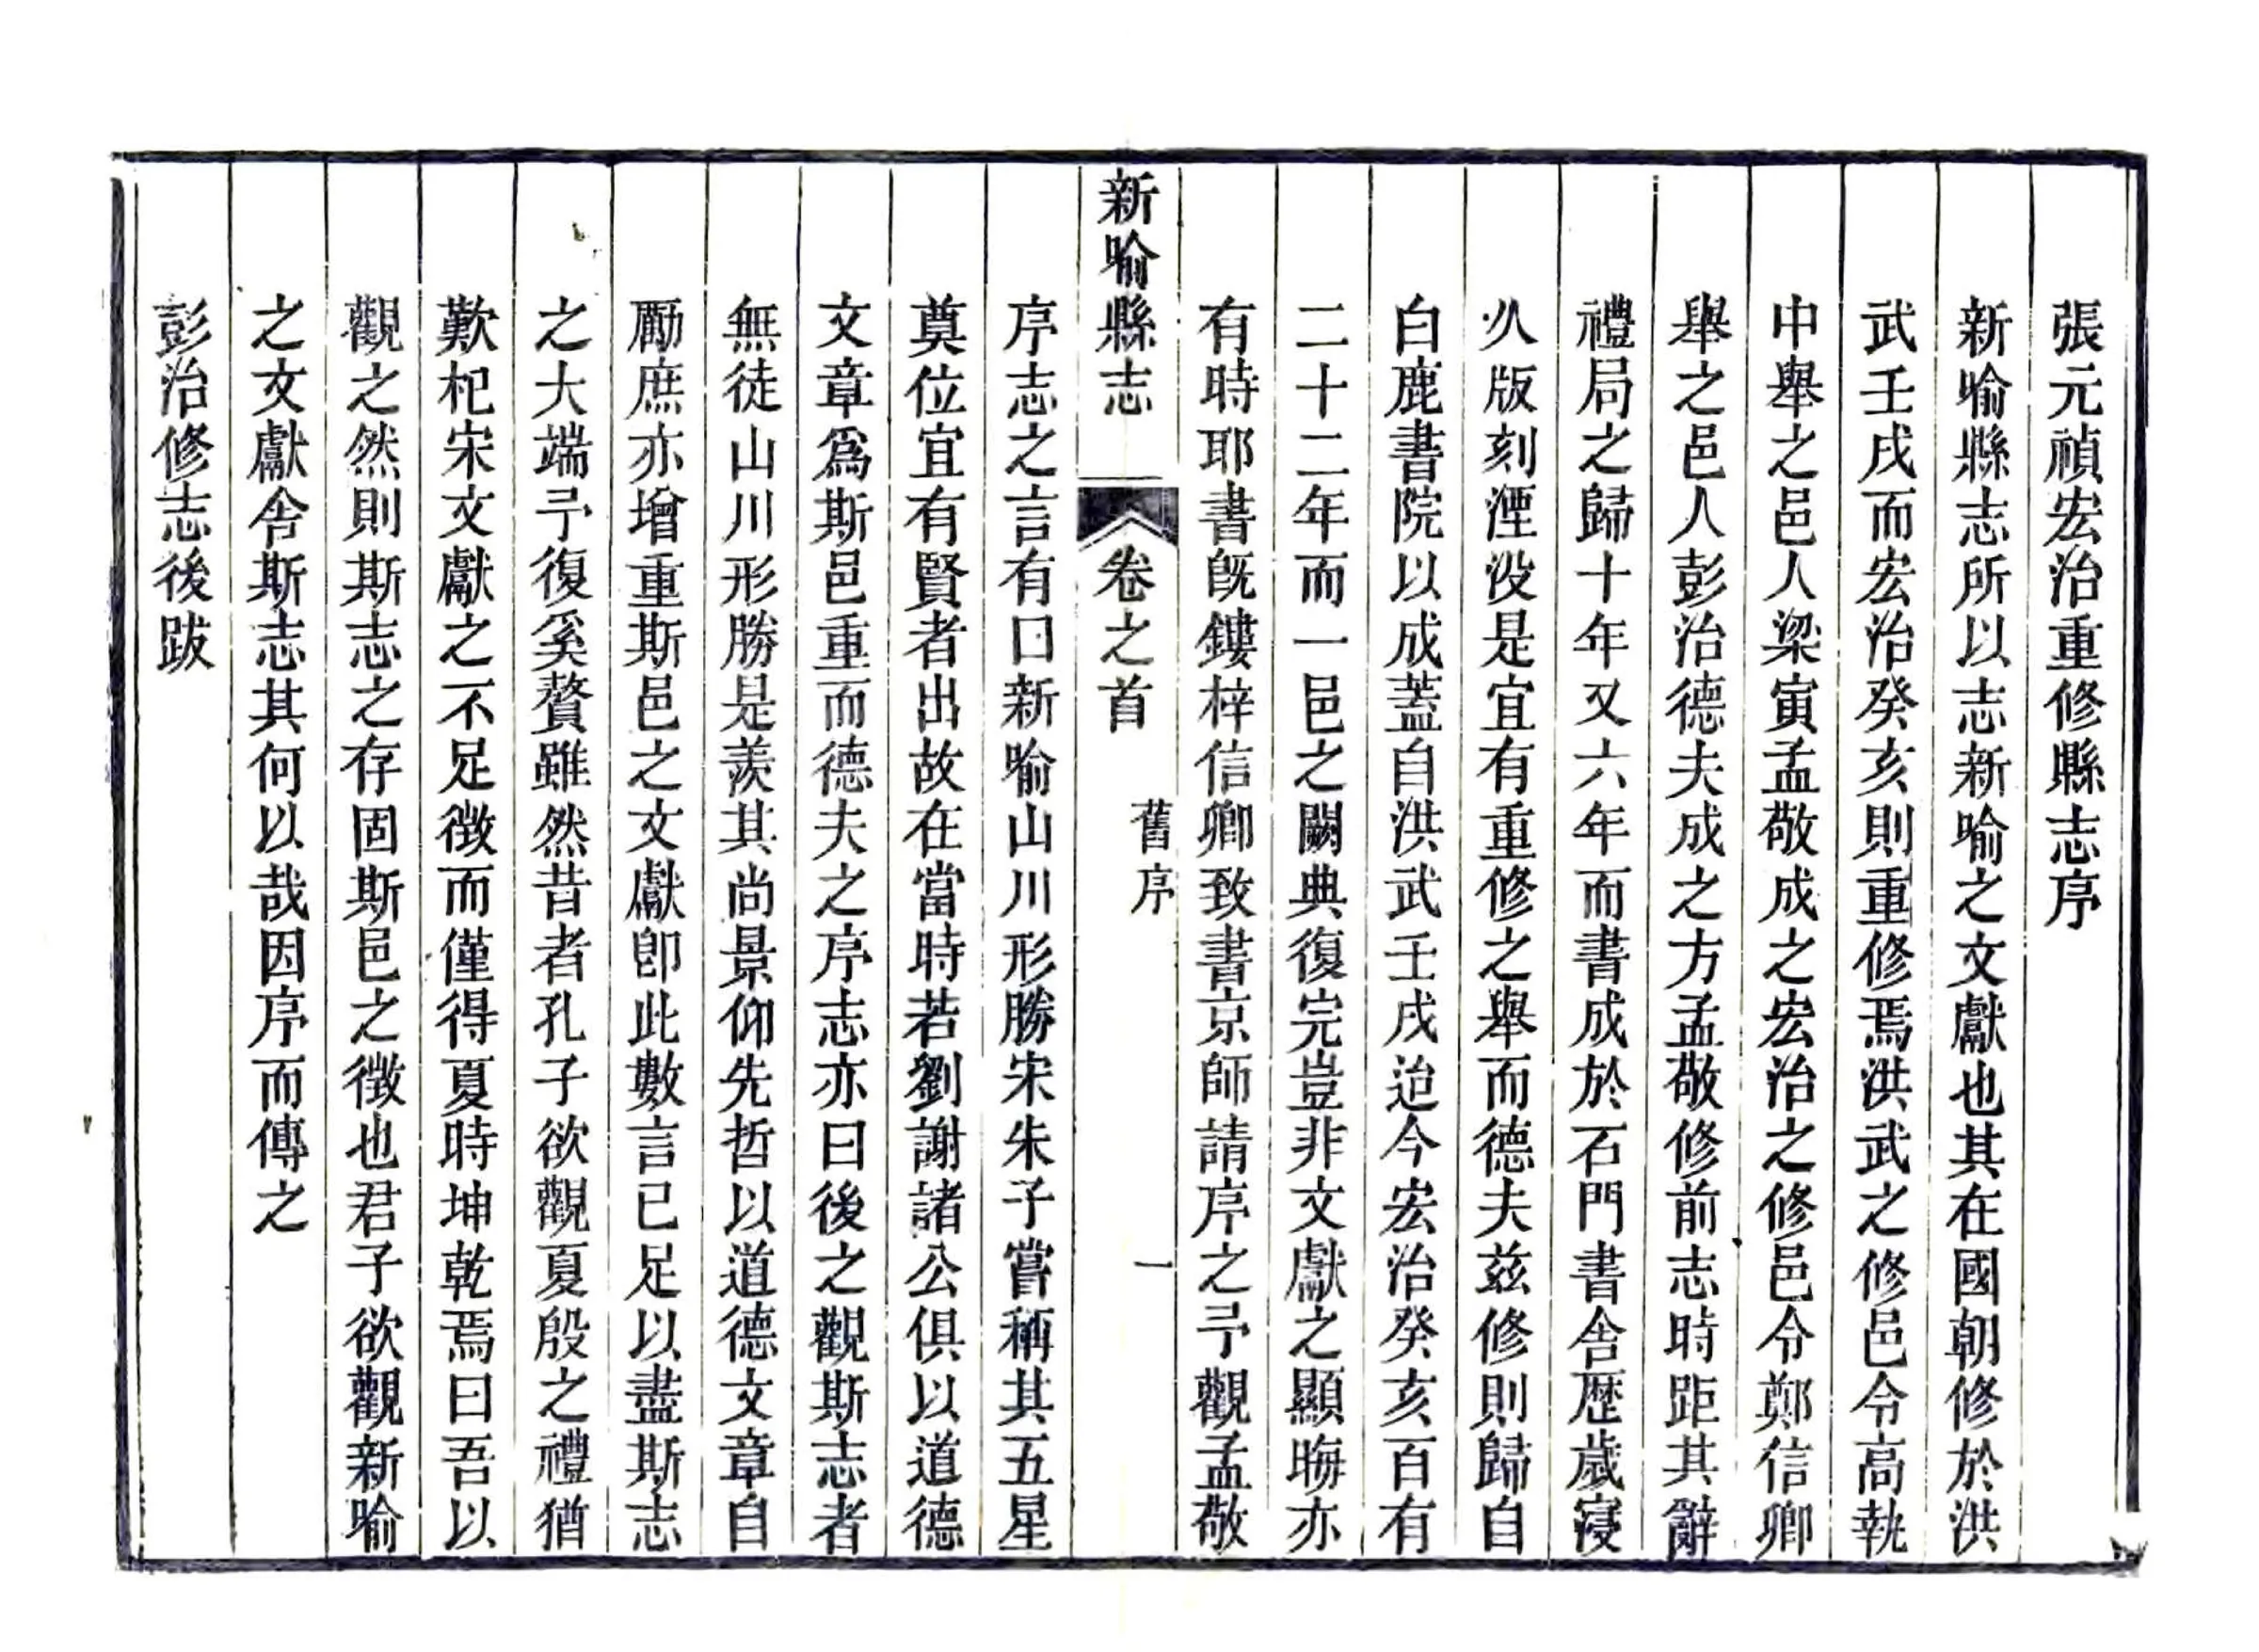 張元禎宏治重修縣志序
新喻縣志所以志新喻之文獻也其在國朝修於洪
武壬戌而宏治癸亥則重修焉洪武之修邑令高執
中舉之邑人梁寅孟敬成之宏治之修邑令鄭信卿
舉之邑人彭治德夫成之方孟敬修前志時距其辭
禮局之歸十年又六年而書成於石門書舍歷歲寖
久版刻湮没是宜有重修之舉而德夫兹修則歸自
白鹿書院以成蓋自洪武壬戌迨今宏治癸亥百有
二十二年而一邑之闕典復完豈非文獻之顯晦亦
有時耶書旣鏤梓信卿致書京師請序之予觀孟敬
新喻縣志 卷之首 舊序 一
序志之言有曰新喻山川形勝宋朱子嘗稱其五星
奠位宜有賢者出故在當時若劉謝諸公俱以道德
文章爲斯邑重而德夫之序志亦曰後之觀斯志者
無徒山川形勝是羨其尚景仰先哲以道德文章自
勵庶亦增重斯邑之文獻卽此數言已足以盡斯志
之大端予復奚贅雖然昔者孔子欲觀夏殷之禮猶
歎杞宋文獻之不足徵而僅得夏時坤乾焉曰吾以
觀之然則斯志之存固斯邑之徵也君子欲觀新喻
之文獻舍斯志其何以哉因序而傳之
彭治修志後跋